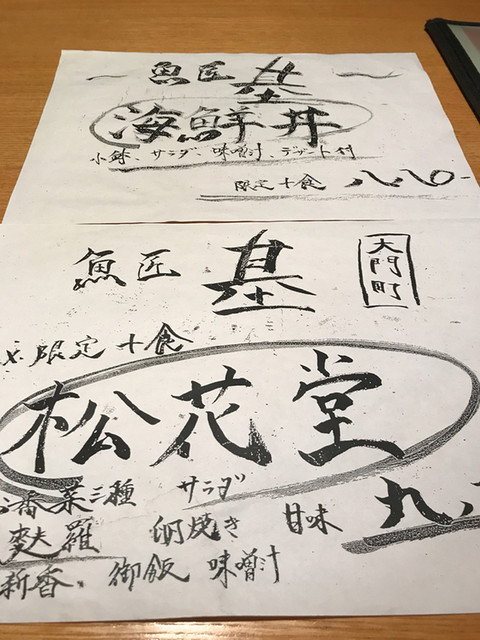 〜 魚匠 基 〜
海鮮丼
小鉢、サラダ、味噌汁、デザート付
限定十食 八八〇-
魚匠 基 大門町
限定十食
松花堂
菜三種 サラダ
麩羅 卵焼き 甘味 九
新香、御飯 味噌汁